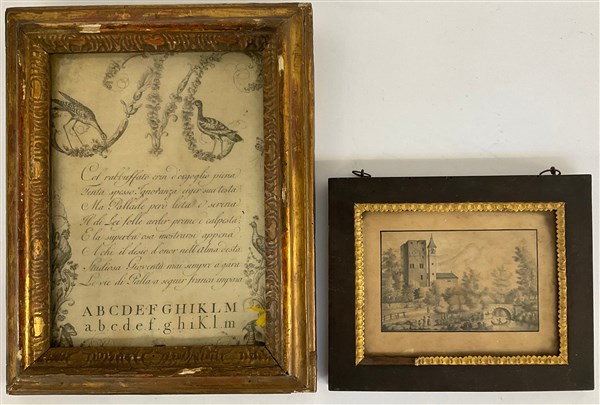 M
Col rabbuffato crin d'orgoglio piena
Tenta spesso Ignoranza erger sua testa
Ma Pallade però lieta e serena
Di Lei folle ardir preme e calpesta
E la superba osa mostrarsi appena
A chi il desio d'onor nell'alma desta
Studiosa Gioventù mai sempre a gara
Le vie di Palla a seguir franca impara
A B C D E F G H I K L M
a. b. c. d. e. f. g. h. i. k. l. m